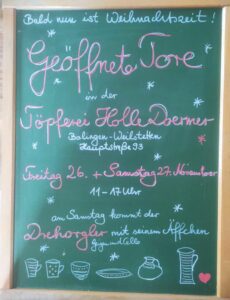 Bald nun ist Weihnachtszeit!
Geöffnete Tore
in der
Töpferei Holle Doerner
Balingen-Weilstetten
Hauptstraße 93
Freitag 26. + Samstag 27. November
11-17 Uhr
am Samstag kommt der
Drehorgler mit seinem Äffchen